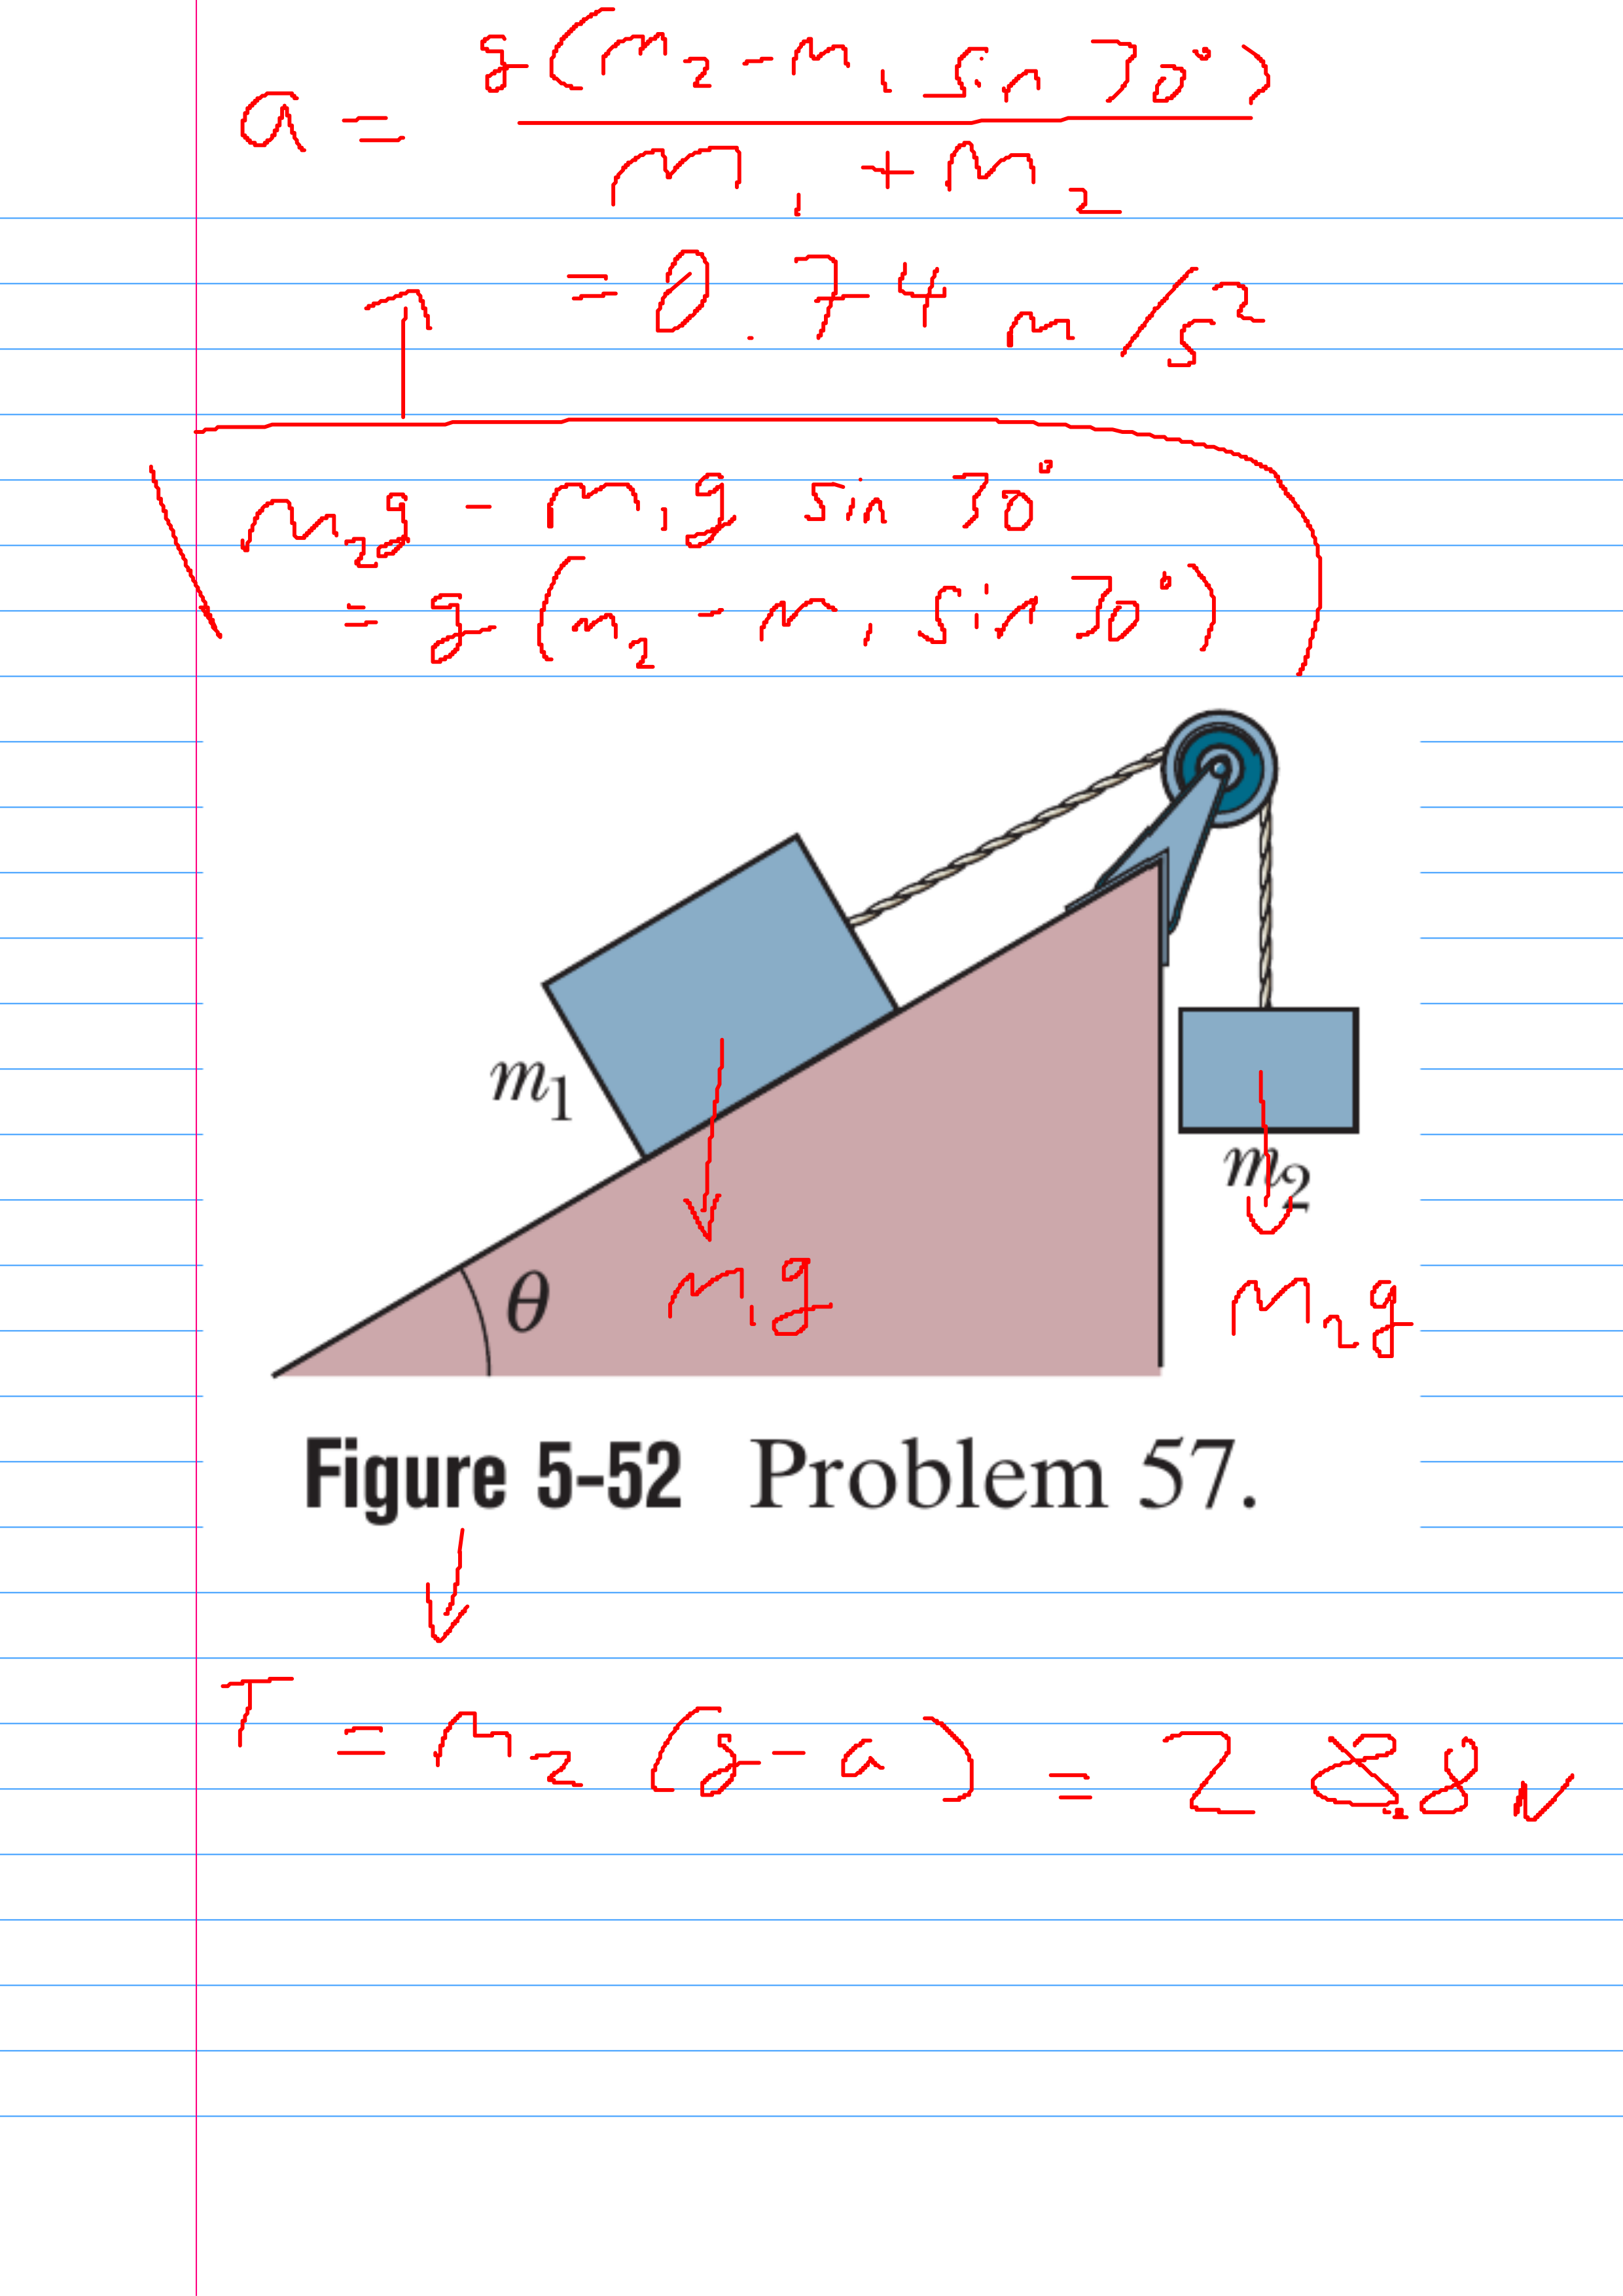 a = g(m₂ - m₁ sin 30°)
m₁ + m₂
= 0.74 m/s²
m₂g - m₁g sin 30°
= g(m₂ - m₁ sin 30°)
m₁
m₂
θ
m₁g
m₂g
Figure 5-52 Problem 57.
T = m₂ (g - a) = 28.8 N